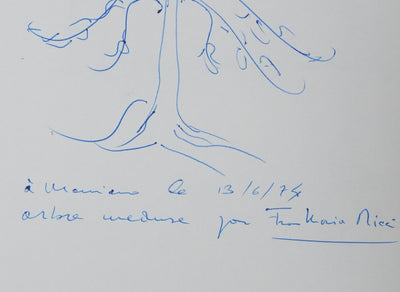 à Mariano le 13/6/74
arbre meduse par Franco Maria Ricci